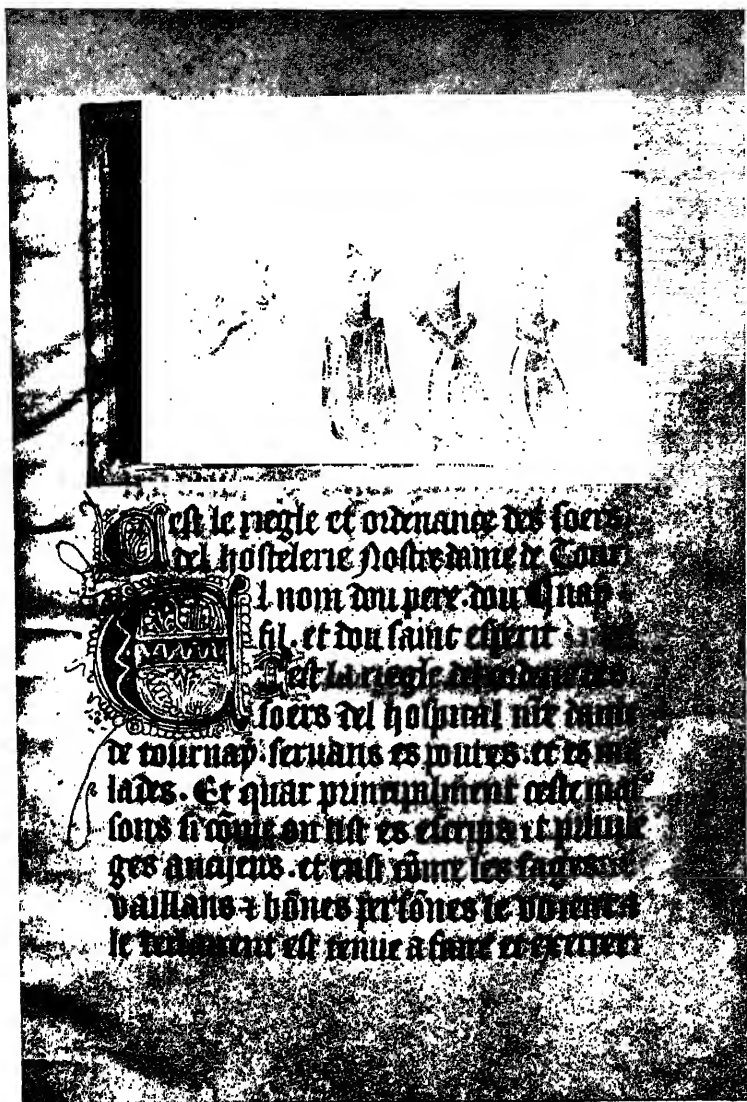 Cest le riegle et ordenance des soers
del hostelerie Nostre dame de Tour
El nom dou pere. dou
fil. et dou saint esperit
Cest la riegle
soers del hospital nre dame
de tournay. servans es povres. et es ma
lades. Et quar principalment ceste mai
sons si cõme on list es escrips et privile
ges anciens. et ensi cõme les sages
vaillans ⁊ bõnes persõnes le
le est tenue a faire et